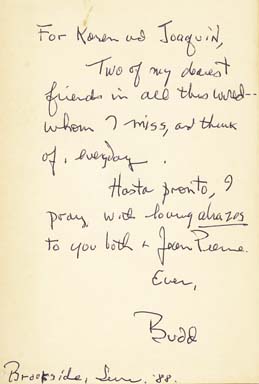 For Karen and Joaquin,
Two of my dearest
friends in all this world--
whom I miss, and think
of, everyday.
Hasta pronto, I
pray, with loving abrazos
to you both + Jean Pierre.
Ever,
Budd
Brookside, June, '88.